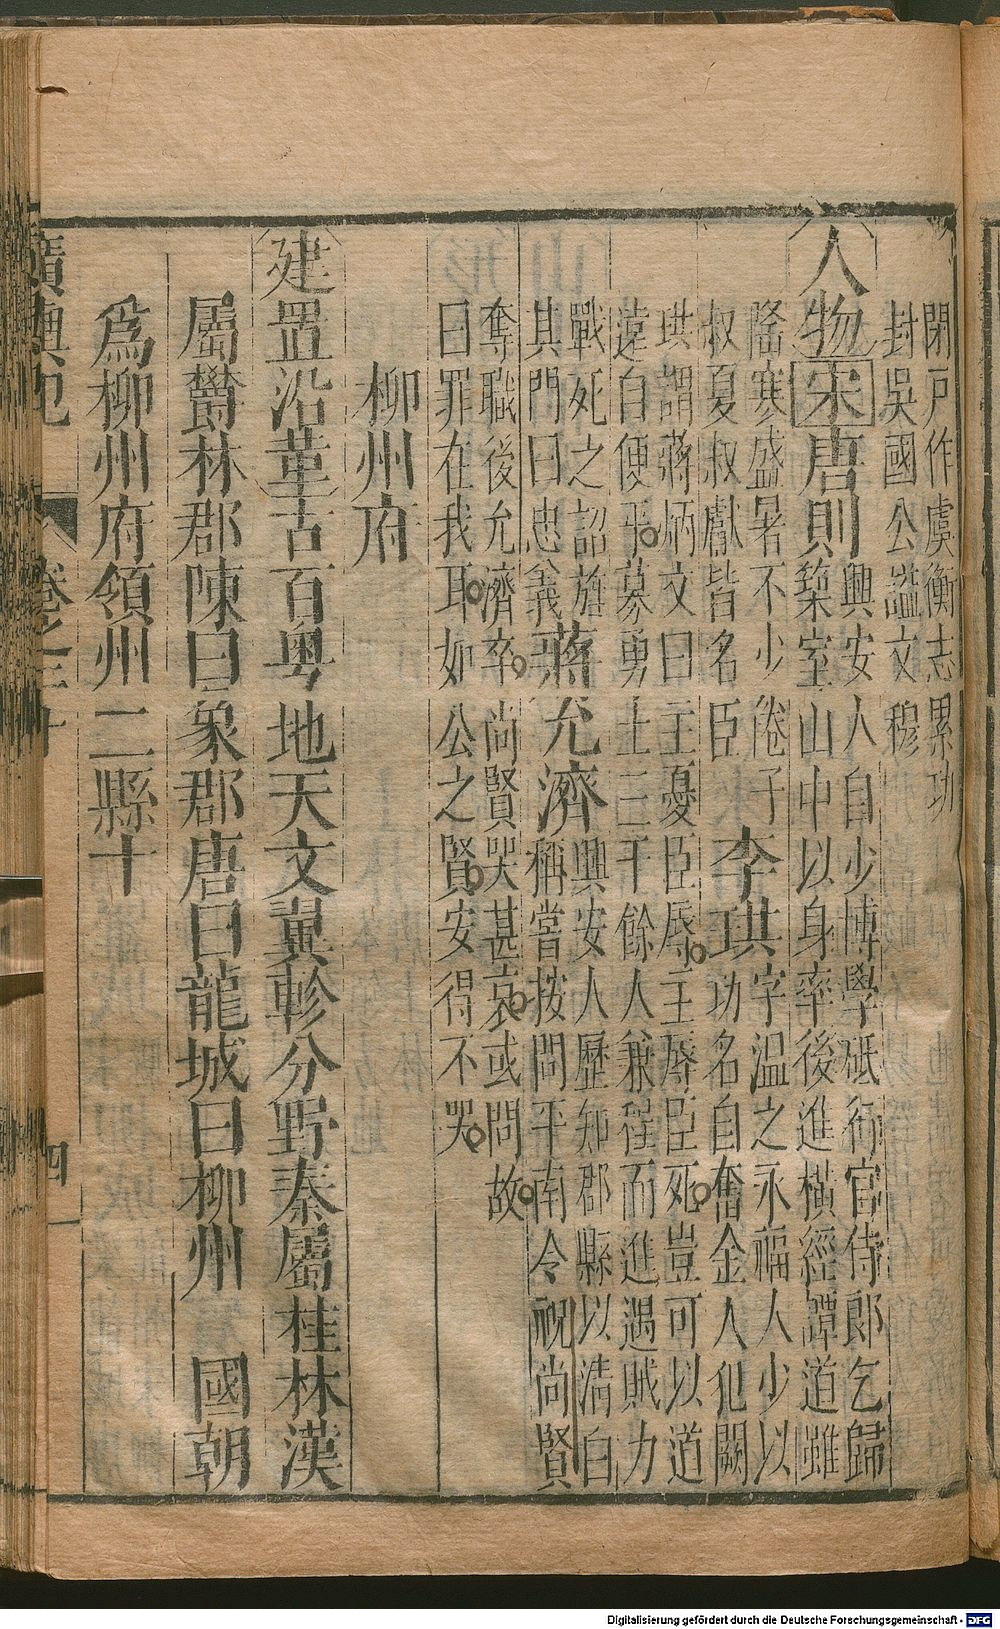 閉戸作虞衡志累功
封吳國公謚文穆
人物宋唐則
興安人自少博學砥行官侍郎乞歸
築室山中以身率後進橫經譚道雖
隆寒盛暑不少倦子
叔夏叔獻皆名臣
李珙
字温之永福人少以
功名自奮金人犯闕
珙謂蔣炳文曰主憂臣辱主辱臣死豈可以道
遠自便乎募勇士三千餘人兼程而進遇賊力
戰死之詔旌
其門曰忠義
蔣允濟
興安人歷知郡縣以清白
稱嘗按問平南令視尚賢
奪職後允濟卒尚賢哭甚哀或問故
曰罪在我耳如公之賢安得不哭
柳州府
建置沿革古百粤地天文翼軫分野秦屬桂林漢
屬欝林郡陳曰象郡唐曰龍城曰柳州 國朝
爲柳州府領州二縣十
廣輿記
卷之二十
四
Digitalisierung gefördert durch die Deutsche Forschungsgemeinschaft - DFG